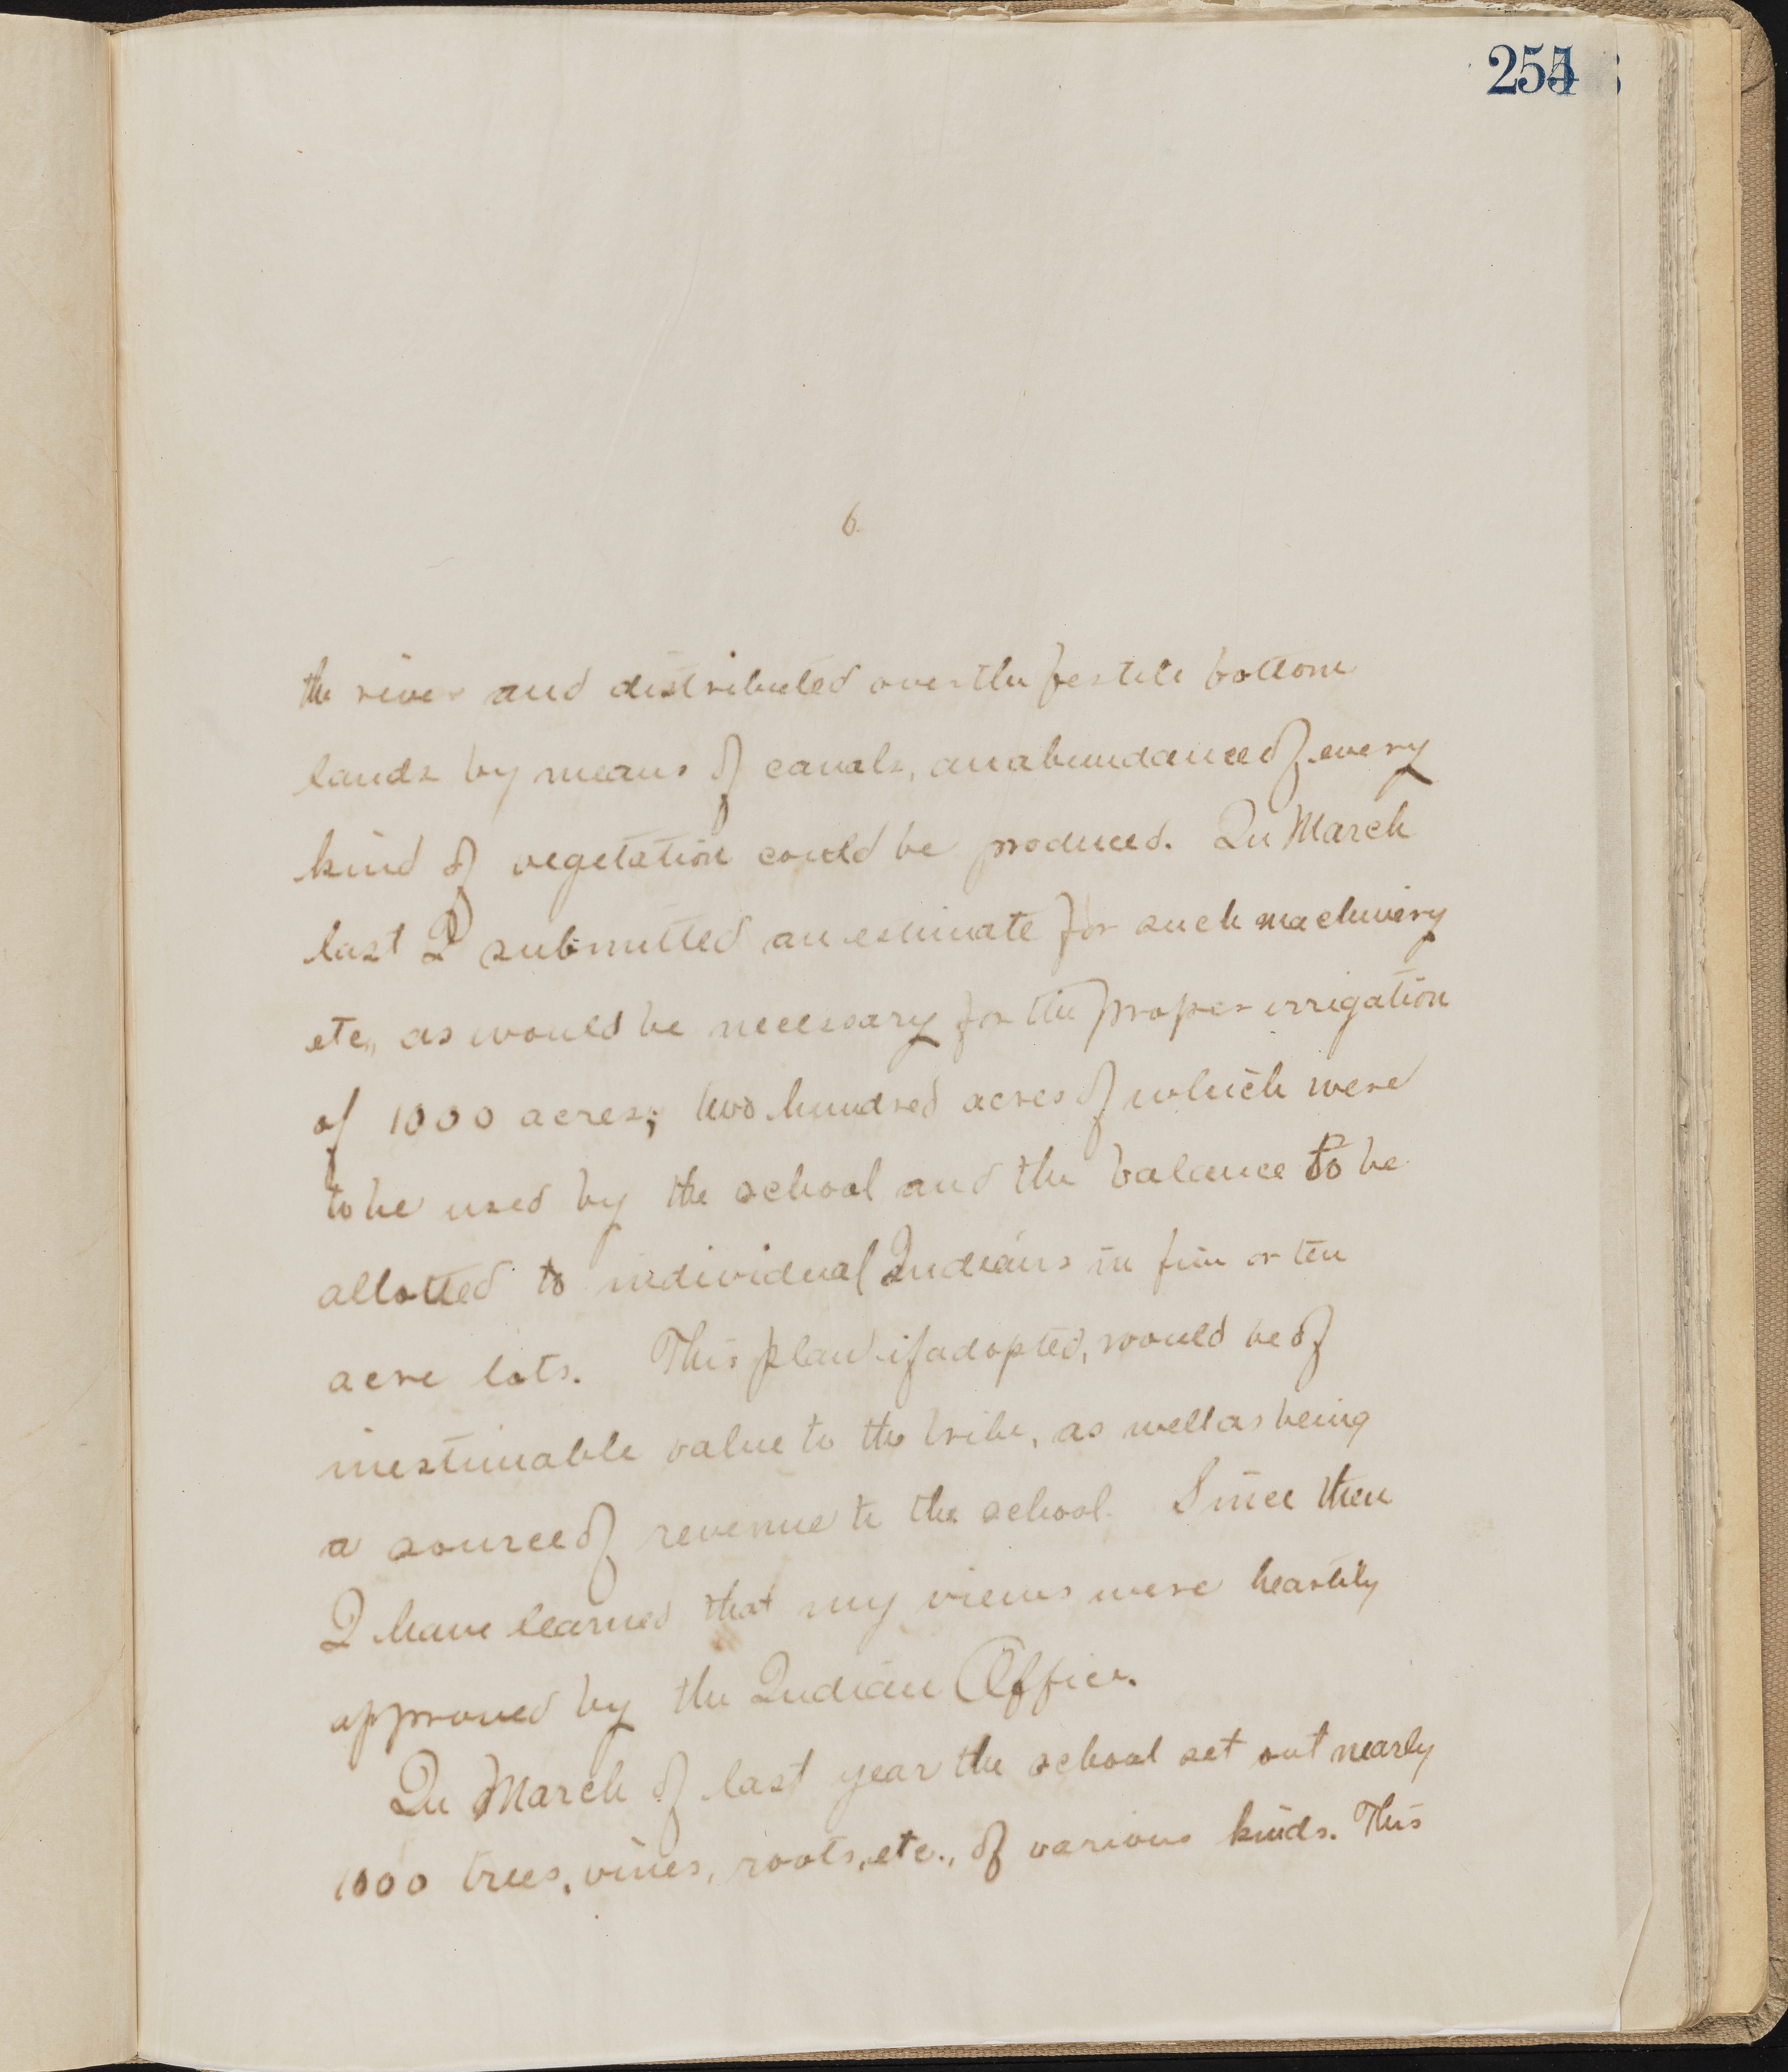 254
6.
the river and distributed over the fertile bottom
lands by means of canals, an abundance of every
kind of vegetation could be produced. In March
last I submitted an estimate for such machinery
etc., as would be necessary for the proper irrigation
of 1000 acres; two hundred acres of which were
to be used by the school and the balance to be
allotted to individual Indians in five or ten
acre lots. This plan if adopted, would be of
inestimable value to the tribe, as well as being
a source of revenue to the school. Since then
I have learned that my views were heartily
approved by the Indian Office.
In March of last year the school set out nearly
1000 trees, vines, roots, etc., of various kinds. This